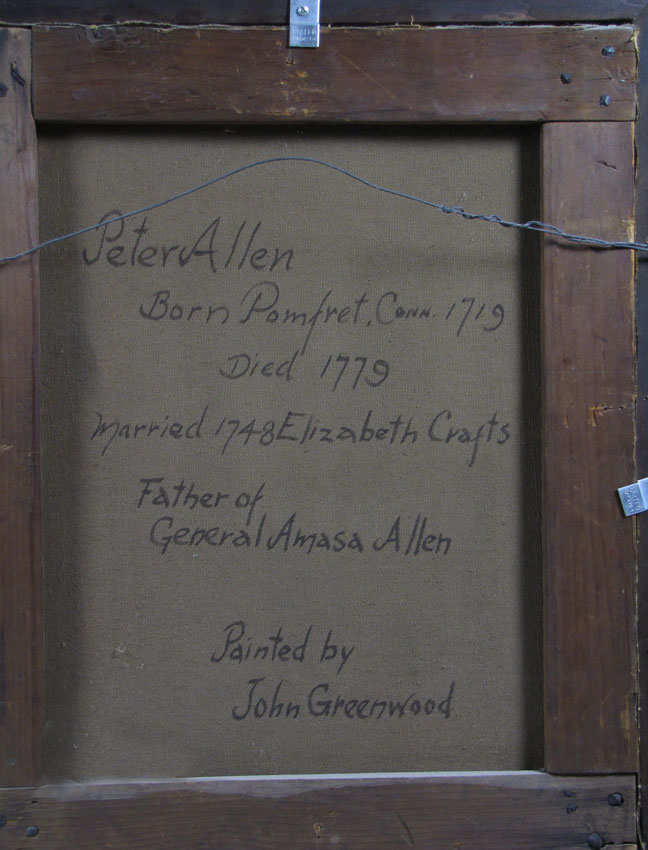 Peter Allen
Born Pomfret, Conn. 1719
Died 1779
Married 1748 Elizabeth Crafts
Father of
General Amasa Allen
Painted by
John Greenwood